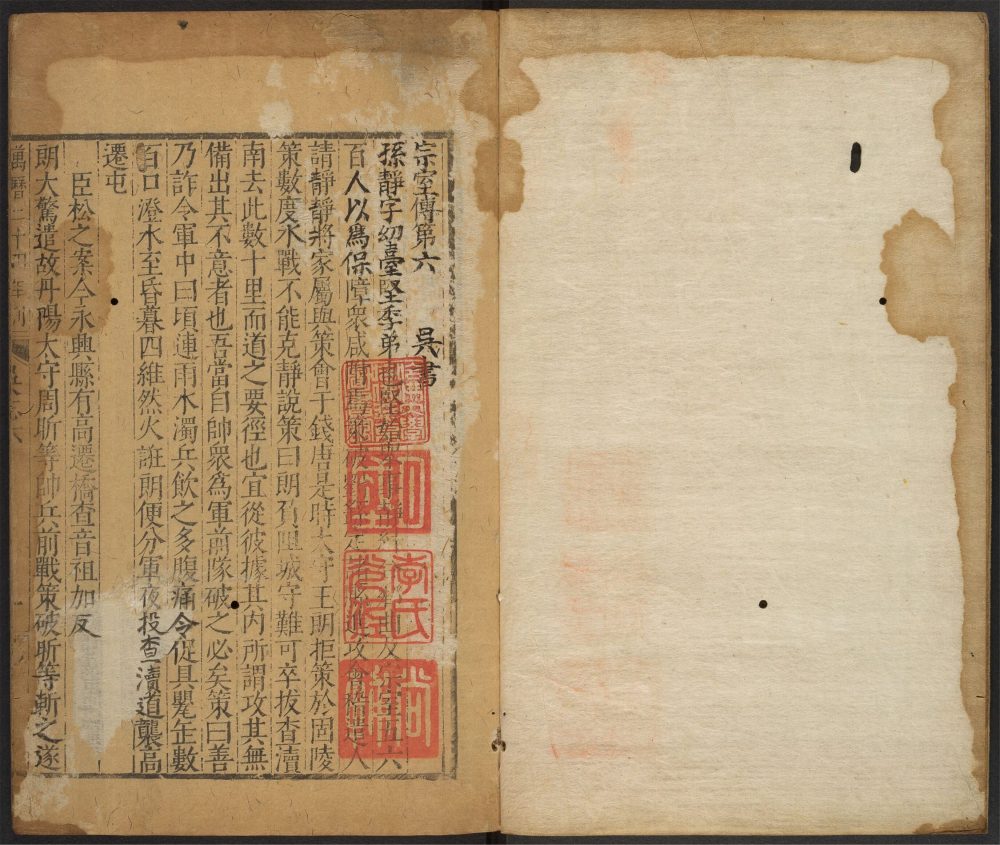 宗室傳第六 吳書
孫靜字幼臺堅季弟也堅始舉事靜 及宗室五六
百人以爲保障衆咸附焉策破劉 進攻會稽遣人
請靜靜將家屬與策會于錢唐是時太守王朗拒策於固陵
策數度水戰不能克靜說策曰朗負阻城守難可卒拔查瀆
南去此數十里而道之要徑也宜從彼據其内所謂攻其無
備出其不意者也吾當自帥衆爲軍前隊破之必矣策曰善
乃詐令軍中曰頃連雨水濁兵飲之多腹痛令促具甖缶數
百口澄水至昏暮四維然火誑朗便分軍夜投查瀆道襲高
遷屯
臣松之案今永興縣有高遷橋查音祖加反
朗大驚遣故丹陽太守周昕等帥兵前戰策破昕等斬之遂
萬曆二十四年刊
李氏